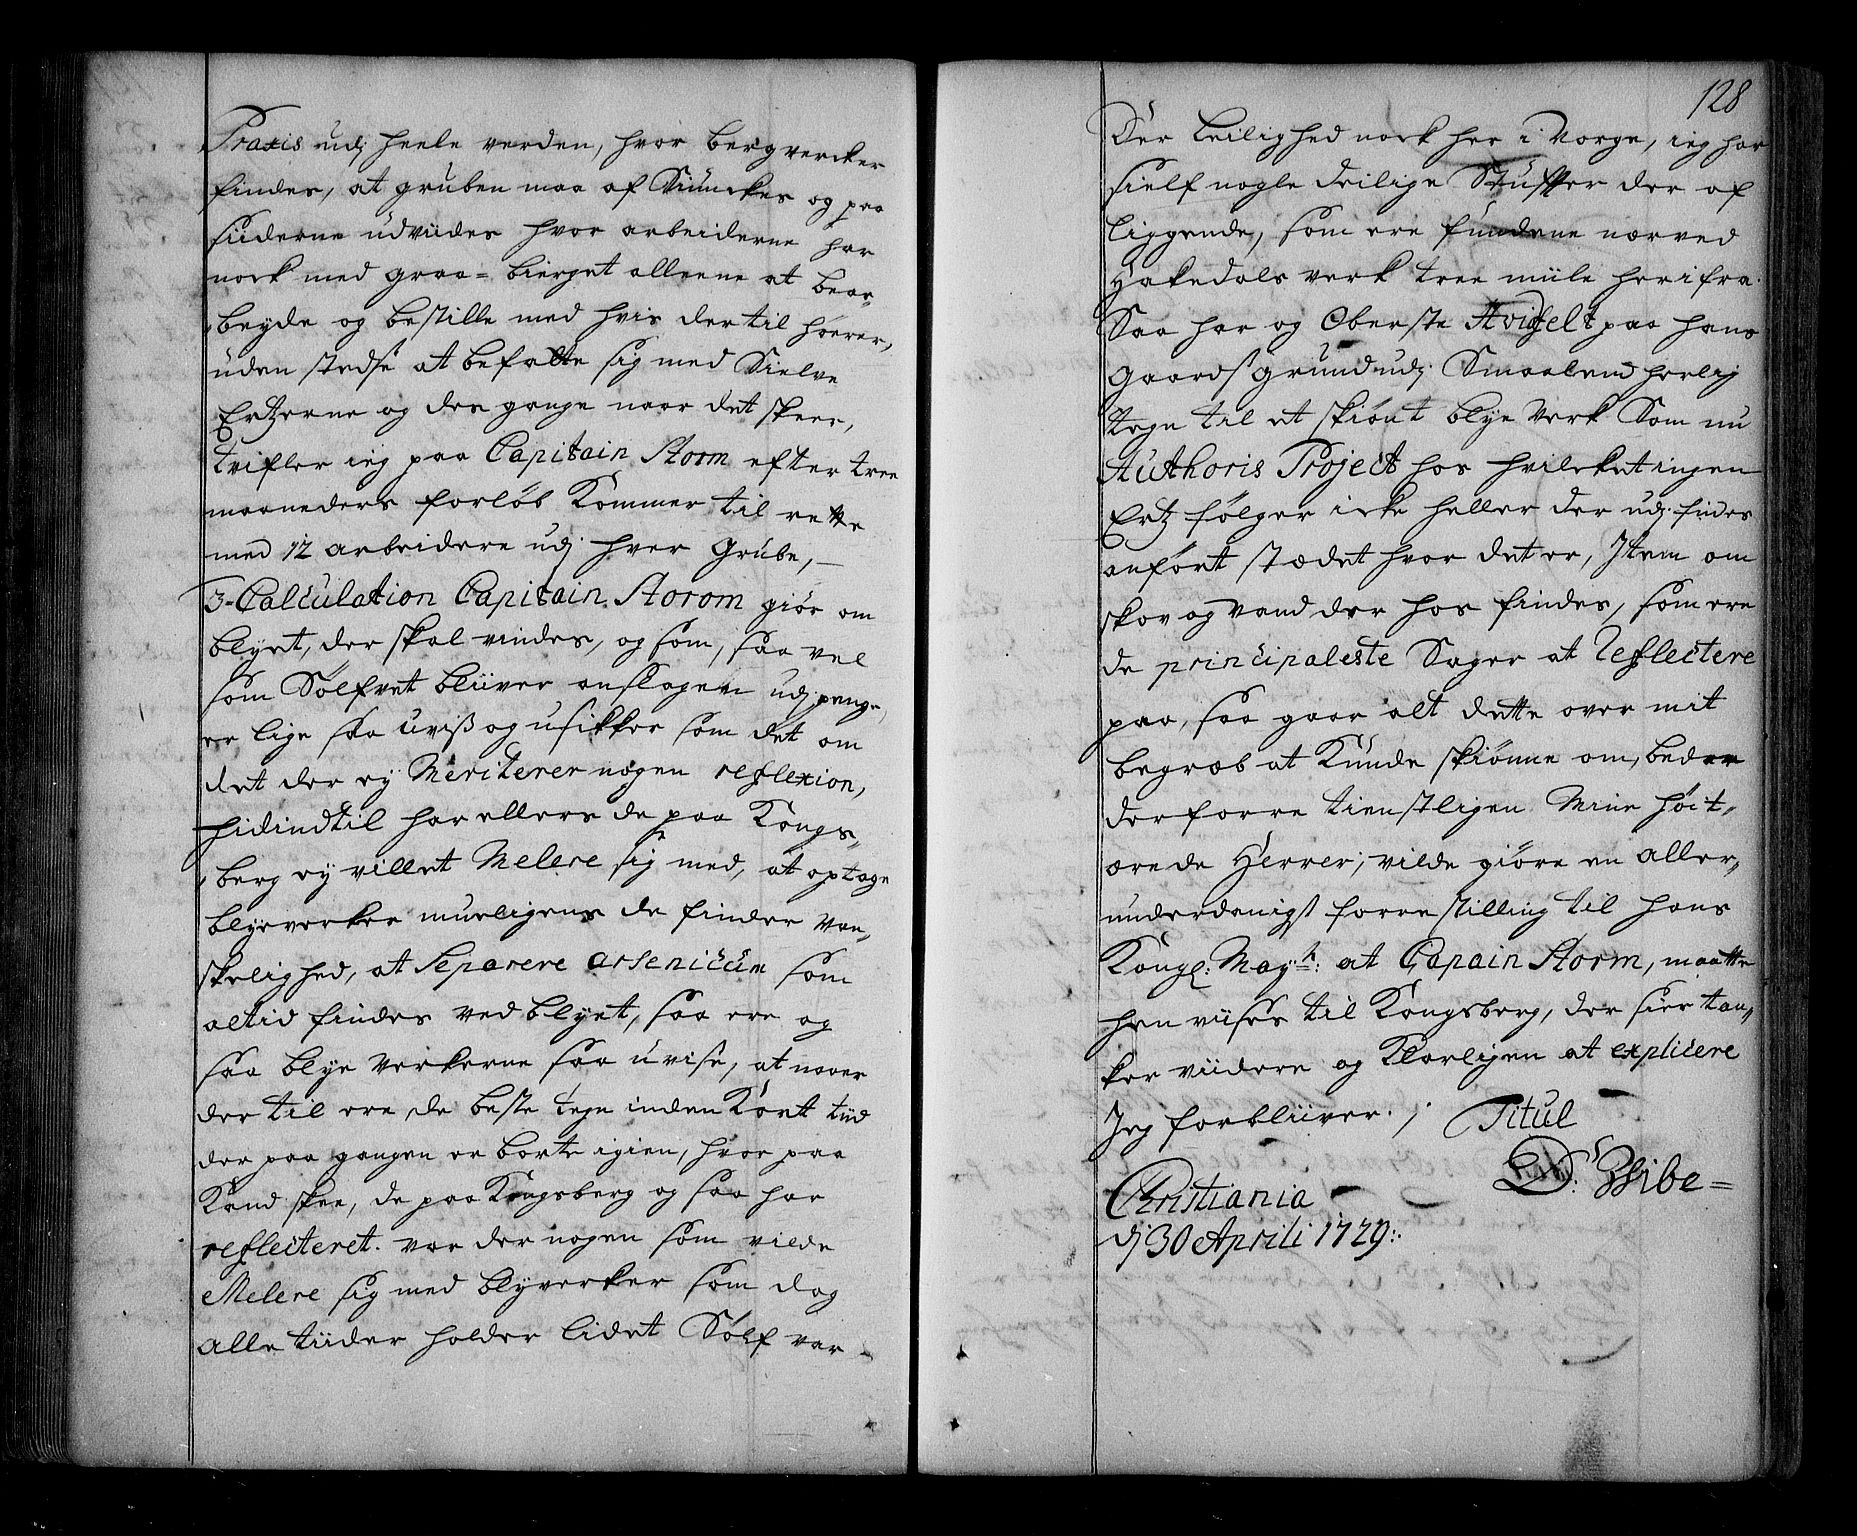 Praxis udj heele verden, hvor bergvercker
findes, at gruben maa af Siunckes og paa
siiderne udviides hvor arbeiderne har
nock med graa= bierget alleene at bear,,
,,beyde og bestille med hvis dertil hører,
uden stedse at befatte sig med Sielve
Ertzerne og des gange naar det skeer,
tvifler ieg paa Capitain Storm efter tree
maaneders forløb Kommer til rette
med 12 arbeidere udj hver Grube,
3- Calculation Capitain Storom giør om
blyet, der skal vindes, og som, saa vel
som Sølfvet bliiver anslagen udj penge,
er lige saa uviß og usikker som det om
det der ey Meriterer nogen reflexion,
hidindtil har ellers de paa Kongs,,
,,berg ey villet Melere sig med, at optage
blyeverker mueligens de finder van,,
skelighed, at Separere arsenicum som
altid findes ved blyet, saa ere og
saa blye Verkerne saa uvise, at naaer
der til ere de beste tegn inden Kort tiid
der paa gangen er borte igien, hvor paa
Kand skee, de paa Kongsberg og saa har
reflecteret. var der nogen som vilde
Melere sig med blyverker som dog
alle tiider holder lidet Sølf var
128
der leilighed nock her i Norge, ieg har
sielf nogle deilige Stuffer der af
liggende, som ere fundene nærved
Hakedals verk tree miile herifra.
Saa har og Oberste Hvidfelt paa hans
Gaards grund udj Smaalend herlig
tegn til et skiønt blye Verk Som nu
Authoris Project hos hvilcket ingen
Ertz følger icke heller der udj findes
anført stædet hvor det er, Item om
skov og vand der hos findes, som ere
de principaleste Sager at reflectere
paa, saa gaar alt dette over mit
begreb at Kunde skiønne om, beder
derforre tienstligen Mine høit,,
ærede Herrer, vilde giøre en aller,,
underdanigst forrestilling til hans
Kongl: May:ts: at Capain Storm, maatte
henviises til Kongsberg, der sine tan,,
ker viidere og Klarligen at explicere
Jeg forbliiver. / Titul
D: Wibe=
Christiania
dj 30 Aprili 1729: